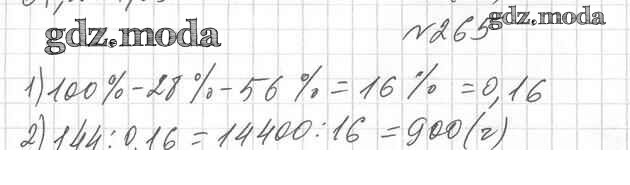 gdz.moda
№265
gdz.moda
1) 100% - 28% - 56% = 16% = 0,16
2) 144 : 0,16 = 14400 : 16 = 900 (г)